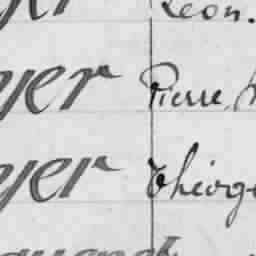 yer Léon.
yer Pierre
yer Théog